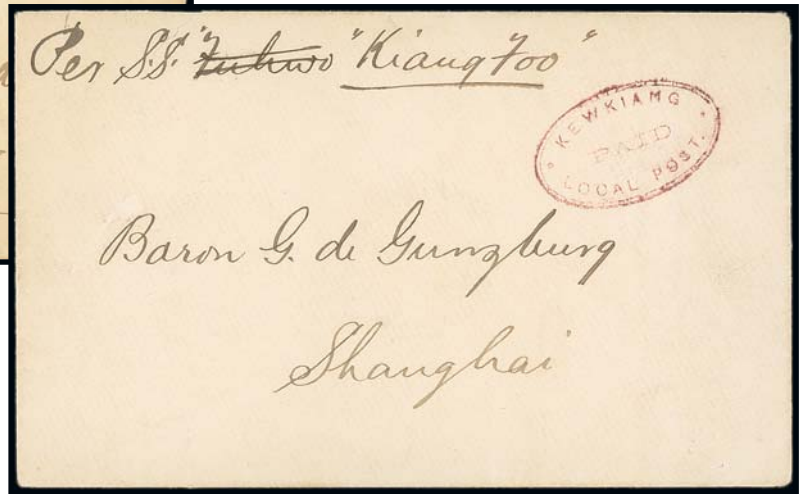 Per S.S. "Tuhwo "Kiang Foo"
KEWKIANG
PAID
LOCAL POST.
Baron G. de Gunzburg
Shanghai